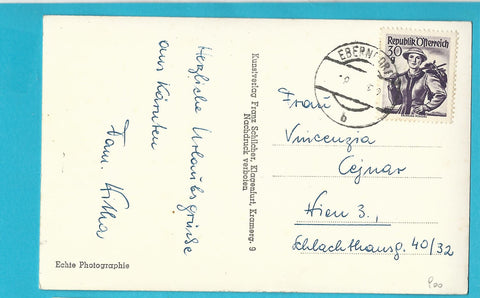 Herzliche Urlaubsgrüße
aus Kärnten
Fam.
Echte Photographie
Kunstverlag Franz Schilcher, Klagenfurt, Kramerg. 9
Nachdruck verboten
EBERNDORF
b
Republik Österreich
30 g
Frau
Vincenzia
Cejnar
Wien 3.,
Schlachthausg. 40/32